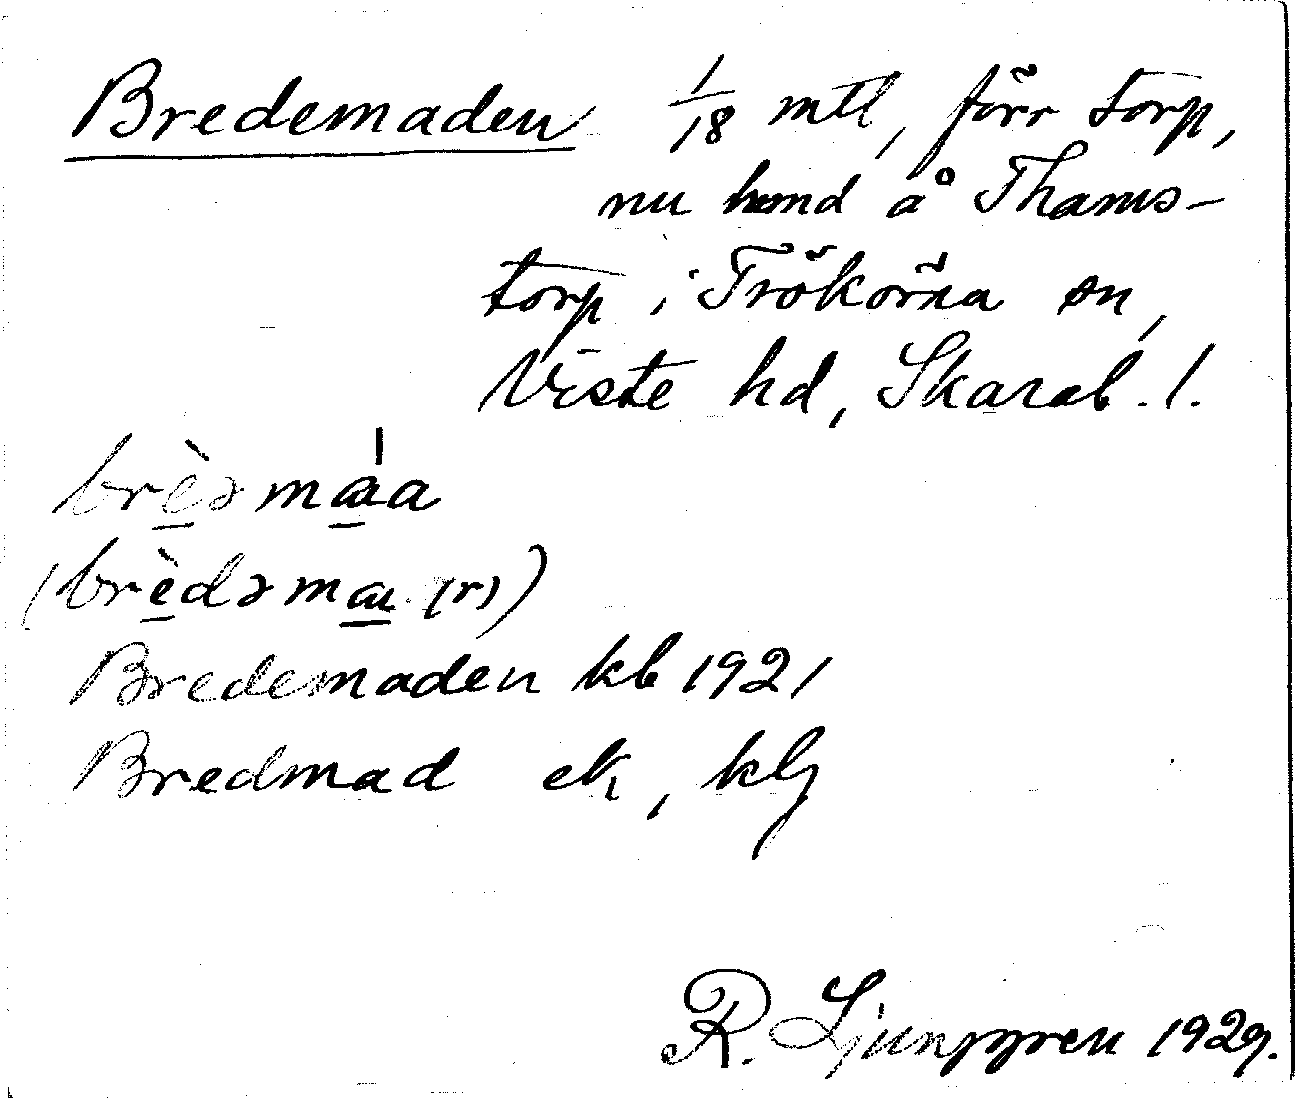 Bredemaden 1/18 mtl, förr torp,
nu hmd å Thams-
torp i Trökörna sn,
Viste hd, Skarab. l.
brèəma̍a
(brèdəma (r))
Bredemaden kb 1921
Bredmad ek, klj
R. Ljunggren 1929.